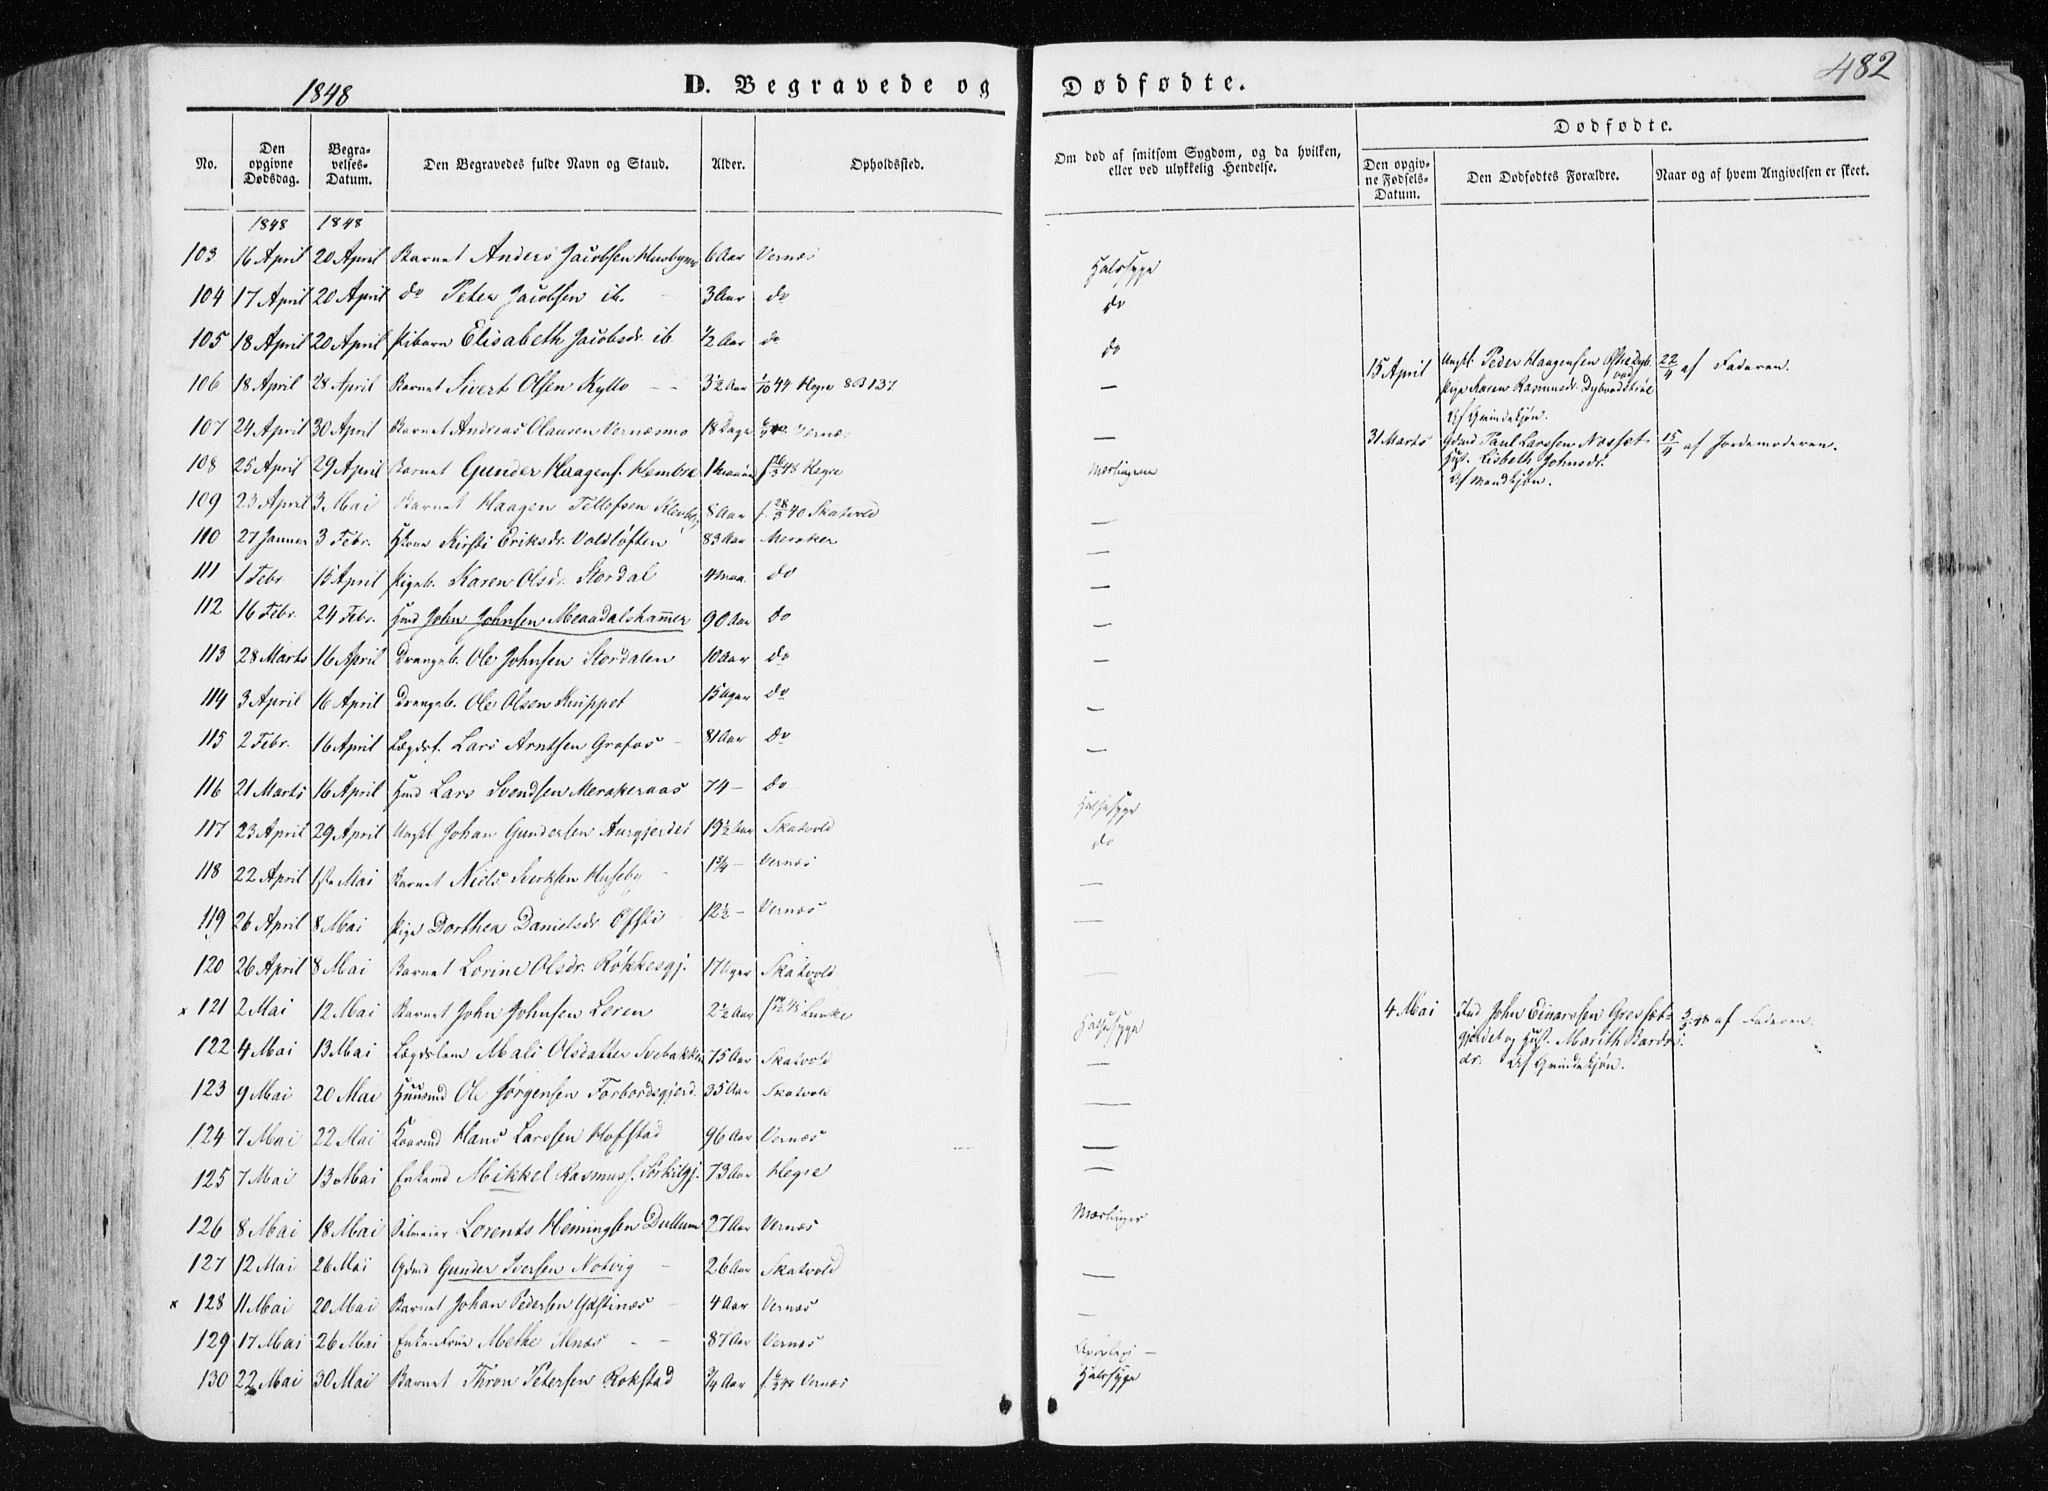 482
1848 D. Begravede og Dødfødte.
Dødfødte.
No. Den opgivne Dødsdag. Begravelses-Datum. Den Begravedes fulde Navn og Staud. Alder. Opholdssted. Om død af smitsom Sygdom, og da hvilken, eller ved ulykkelig Hendelse. Den opgivne Fødsels-Datum. Den Dødfødtes Forældre. Naar og af hvem Angivelsen er skeet.
1848 1848
103 16 April 20 April Barnet Anders Jacobsen 6 Aar Vernæs Halssyge
104 17 April 20 April do Peter Jacobsen ib. 3 Aar do do
105 18 April 20 April Pibarn Elisabeth Jacobsdr ib. 1/2 Aar do do
15 April Ungk. Peder Haagensen 22/4 af Faderen.
106 18 April 28 April Barnet Sivert Olsen Kyllo 3 1/2 Aar 1/10 44 Hegre —
Pige Karen Rasmusdr.
Af Qvindekjøn.
107 24 April 30 April Barnet Andreas Olausen Vernæsmo 18 Dage Vernæs —
31 Marts Gdmd Paul Larssen 15/4 af Jordemoderen.
108 25 April 29 April Barnet Gunder Haagens. Hembre 1 Maaned Hegre Mæslingene
Hust. Lisbeth Johnsdr.
Af Mandkjøn.
109 23 April 3 Mai Barnet Haagen Tellefsen 8 Aar f. 28/3 40 Skatvold —
110 27 Januar 3 Febr. Kirsti Eriksdr. Voldløften 83 Aar Meraker —
111 1 Febr 15 April Pigeb. Karen Olsdr. Stordal 4 maa. do —
112 16 Febr. 24 Febr. John Johnsen Meaadalshammer 90 Aar do —
113 28 Marts 16 April Drengeb. Ole Johnsen Stordalen 10 Aar do —
114 3 April 16 April Drengeb. Ole Olsen 15 Uger do —
115 2 Febr. 16 April Lægdsf. Lars Arntsen Grofos 81 Aar do —
116 21 Marts 16 April Lars Svendsen Merakeraas 74 — do
117 23 April 29 April Ungkl Johan Gundersen Aurgjerdet 19 1/2 Aar Skatvold Halssyge
118 22 April 1ste Mai Barnet Niels Huseby 1 3/4 — Vernæs do
119 26 April 8 Mai Pige Dorthea Danielsdr Øfsti 12 1/2 — Vernæs —
120 26 April 8 Mai Barnet Lorine Olsdr. Røkkesgj. 17 Uger Skatvold —
x 121 2 Mai 12 Mai Barnet John Johnsen Leren 2 1/2 Aar Halssyge
4 Mai John Einarssen 5/5 48 af Faderen.
og Hust. Marith
dr. Af Qvindekjøn.
122 4 Mai 13 Mai Lægdslem Mali Olsdatter 75 Aar Skatvold —
123 9 Mai 20 Mai Huusmd Ole Jørgensen Forbordsgjerd. 35 Aar Skatvold —
124 7 Mai 22 Mai Kaarmd Hans Larssen Hofstad 96 Aar Vernæs —
125 7 Mai 13 Mai Enkemd Mikkel Rasmuss. 73 Aar Hegre —
126 8 Mai 18 Mai Selveier Lorents Hemingsen Dullum 27 Aar Vernæs Mæslinger
127 12 Mai 26 Mai Gdmd Gunder Iversen Notvig 26 Aar Skatvold —
x 128 11 Mai 20 Mai Barnet Johan Pedersen Ydstines 4 Aar Vernæs —
129 17 Mai 26 Mai Enke-Frue Methe 87 Aar Vernæs Apoplexi —
130 22 Mai 30 Mai Barnet Thron Petersen Rokstad 3/4 Aar Vernæs Halssyge